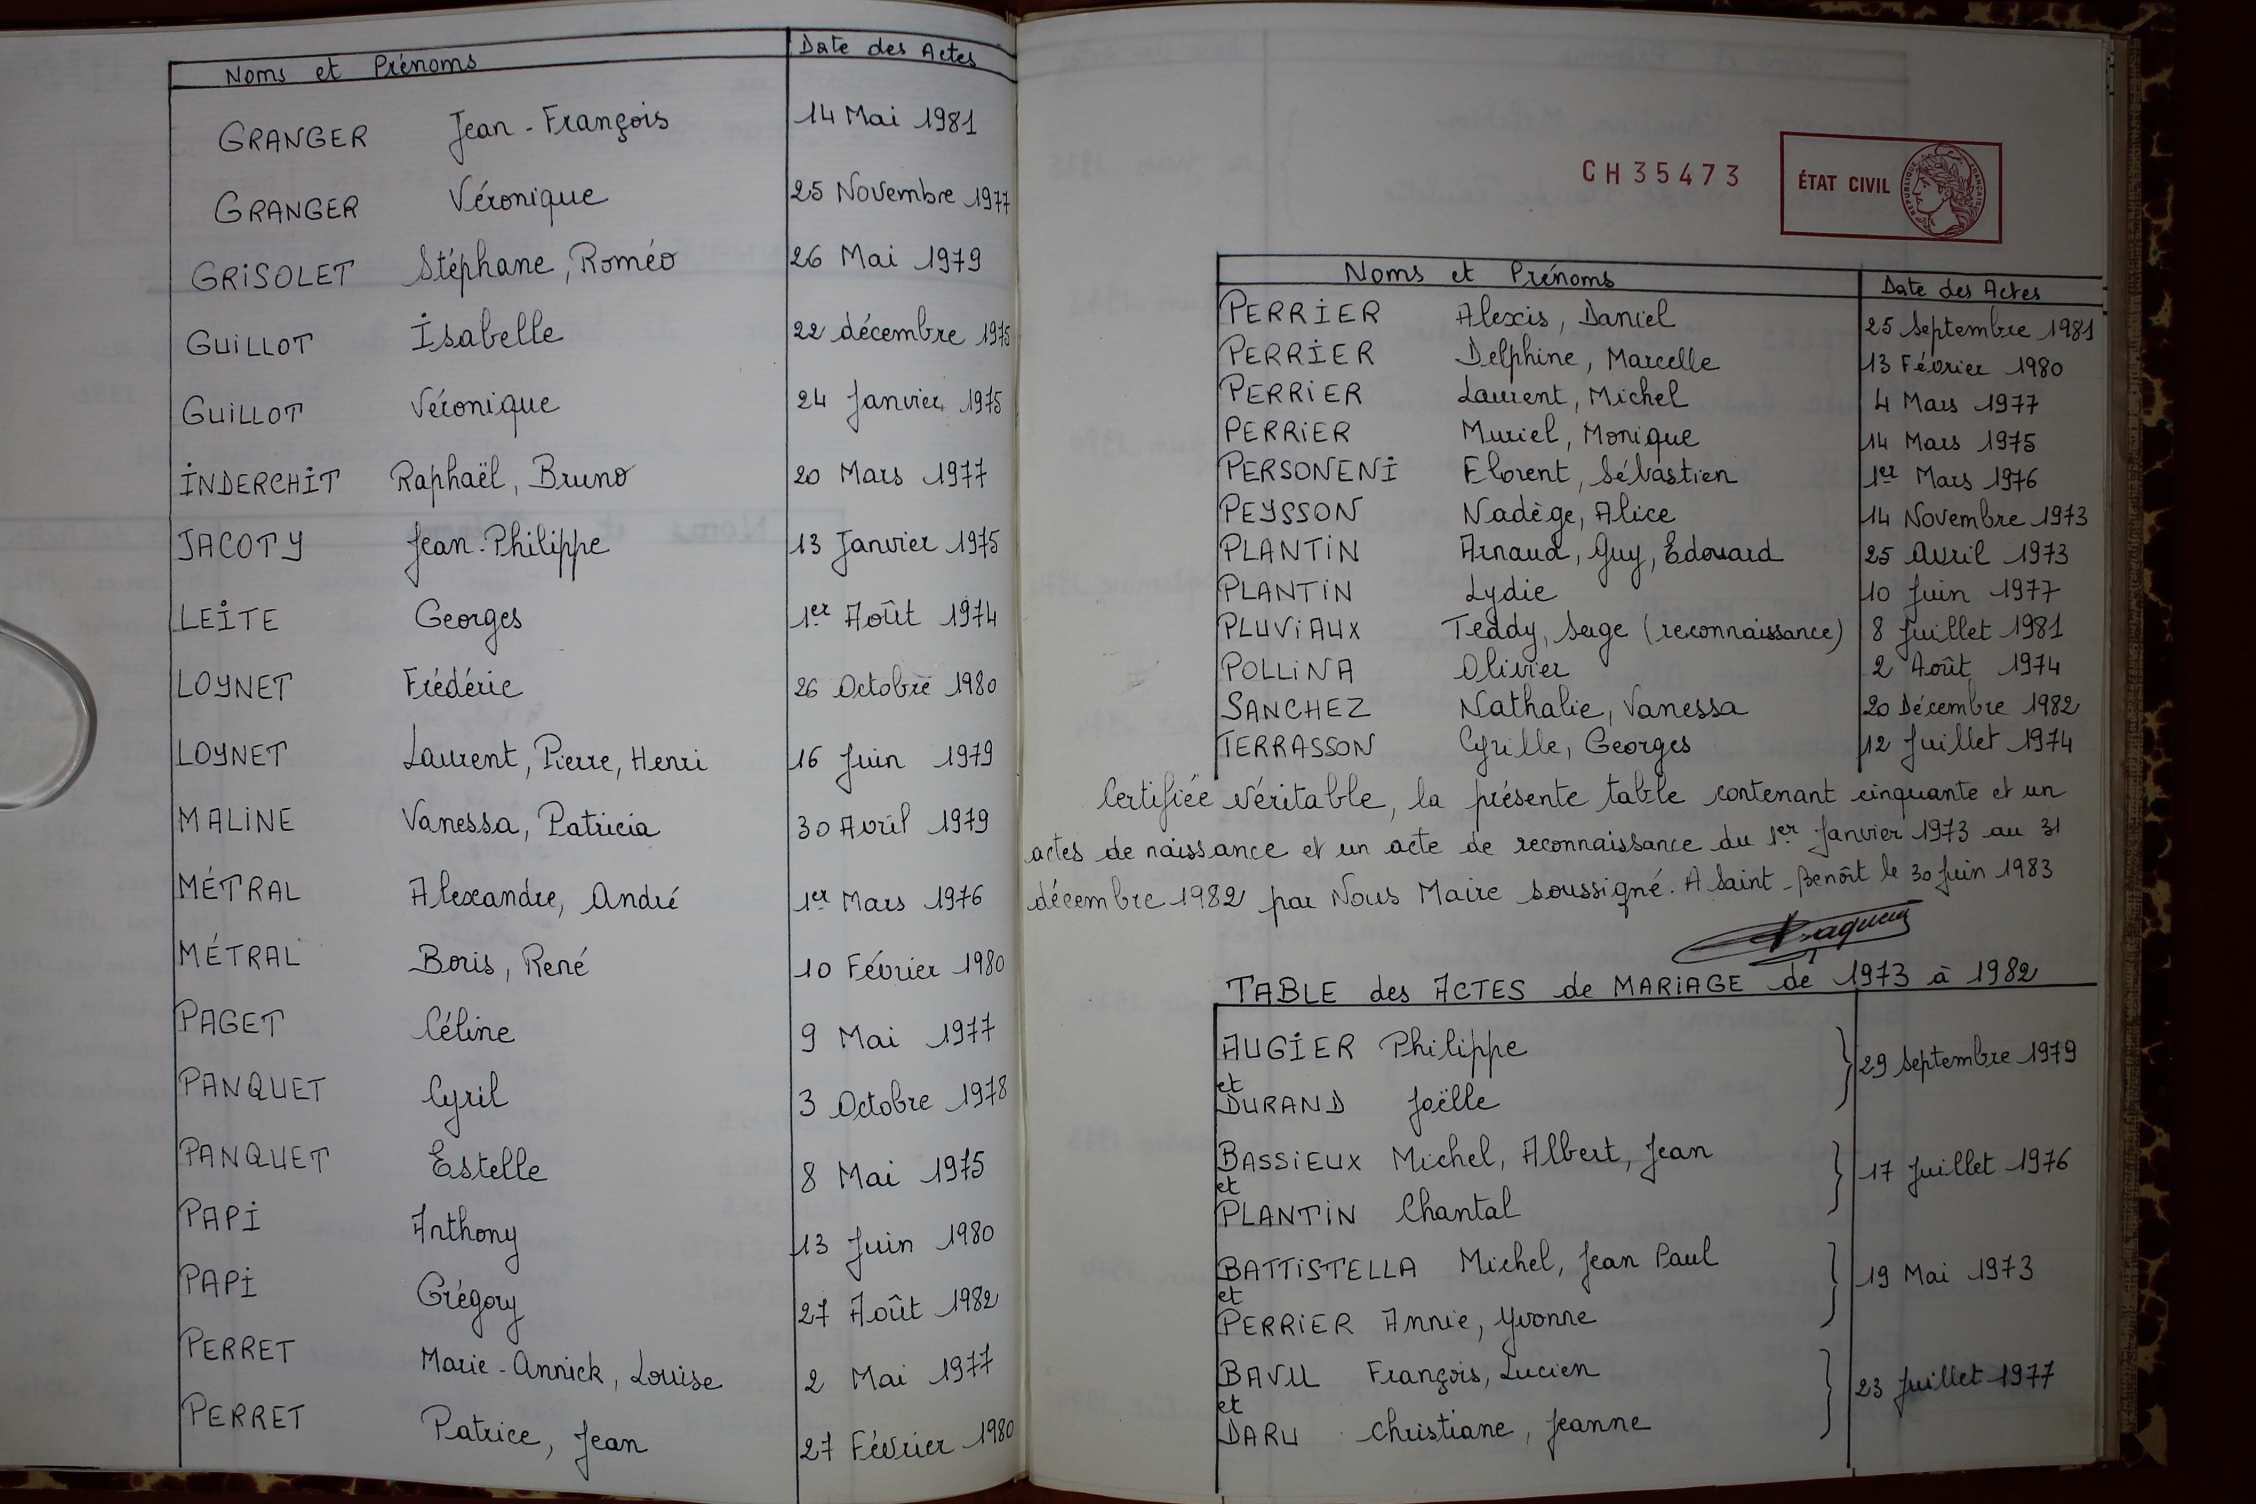 Noms et Prénoms Date des Actes
GRANGER Jean-François 14 Mai 1981
GRANGER Véronique 25 Novembre 1977
GRISOLET Stéphane, Roméo 26 Mai 1979
GUILLOT Isabelle 22 décembre 1975
GUILLOT Véronique 24 Janvier 1975
INDERCHIT Raphaël, Bruno 20 Mars 1977
JACOTY Jean-Philippe 13 Janvier 1975
LEITE Georges 1er Août 1974
LOYNET Frédéric 26 Octobre 1980
LOYNET Laurent, Pierre, Henri 16 Juin 1979
MALINE Vanessa, Patricia 30 Avril 1979
MÉTRAL Alexandre, André 1er Mars 1976
MÉTRAL Boris, René 10 Février 1980
PAGET Céline 9 Mai 1977
PANQUET Cyril 3 Octobre 1978
PANQUET Estelle 8 Mai 1975
PAPI Anthony 13 Juin 1980
PAPI Grégory 27 Août 1982
PERRET Marie-Annick, Louise 2 Mai 1977
PERRET Patrice, Jean 27 Février 1980
CH35473
ÉTAT CIVIL
RÉPUBLIQUE FRANÇAISE
Noms et Prénoms Date des Actes
PERRIER Alexis, Daniel 25 Septembre 1981
PERRIER Delphine, Marcelle 13 Février 1980
PERRIER Laurent, Michel 4 Mars 1977
PERRIER Muriel, Monique 14 Mars 1975
PERSONENI Florent, Sébastien 1er Mars 1976
PEYSSON Nadège, Alice 14 Novembre 1973
PLANTIN Arnaud, Guy, Edouard 25 Avril 1973
PLANTIN Lydie 10 Juin 1977
PLUVIAUX Teddy, Serge (reconnaissance) 8 Juillet 1981
POLLINA Olivier 2 Août 1974
SANCHEZ Nathalie, Vanessa 20 Décembre 1982
TERRASSON Cyrille, Georges 12 Juillet 1974
Certifiée véritable, la présente table contenant cinquante et un
actes de naissance et un acte de reconnaissance du 1er Janvier 1973 au 31
décembre 1982 par Nous Maire soussigné. A Saint-Benoît le 30 Juin 1983
TABLE des ACTES de MARIAGE de 1973 à 1982
AUGIER Philippe
et
DURAND Joëlle
29 Septembre 1979
BASSIEUX Michel, Albert, Jean
et
PLANTIN Chantal
17 Juillet 1976
BATTISTELLA Michel, Jean Paul
et
PERRIER Annie, Yvonne
19 Mai 1973
BAVU François, Lucien
et
DARU Christiane, Jeanne
23 Juillet 1977